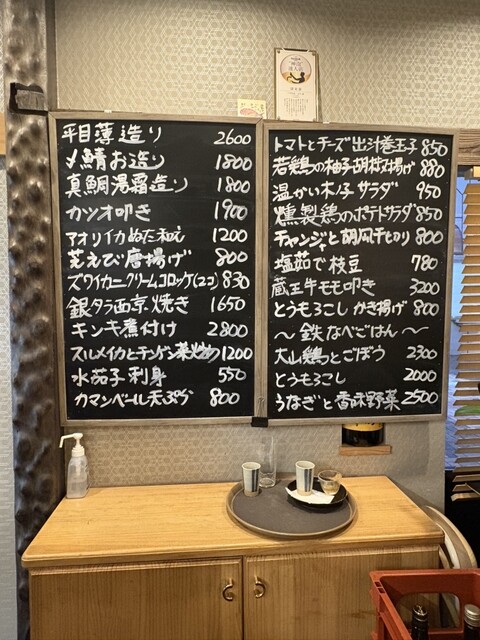 平目薄造り 2600
〆鯖お造り 1800
真鯛湯霜造り 1800
カツオ叩き 1900
アオリイカぬた和え 1200
芝えび唐揚げ 800
ズワイカニクリームコロッケ(2コ) 830
銀タラ西京焼き 1650
キンキ煮付け 2800
スルメイカとチンゲン菜炒め 1200
水茄子刺身 550
カマンベール天ぷら 800
トマトとチーズ出汁巻玉子 850
若鶏の柚子胡椒揚げ 880
温かい木ノ子サラダ 950
燻製鶏のポテトサラダ 850
チャンジャと胡瓜千切り 800
塩茹で枝豆 780
蔵王牛モモ叩き 3200
とうもろこしかき揚げ 800
〜鉄なべごはん〜
大山鶏とごぼう 2300
とうもろこし 2000
うなぎと香味野菜 2500